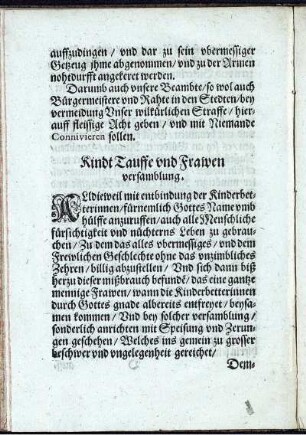 auffzudingen / vnd dar zu sein vbermessiger
Getzeug jhme abgenommen / vnd zu der Armen
nohtdurfft angekeret werden.
Darumb auch vnsere Beambte / so wol auch
Bürgermeistere vnd Rahte in den Stedten / bey
vermeidung Vnser wilkürlichen Straffe / hier-
auff fleissige Acht geben / vnd mit Niemande
Connivieren sollen.
Kindt Tauffe vnd Frawen
versamblung.
ALldieweil mit entbindung der Kinderbet-
terinnen / fürnemlich Gottes Name vmb
hülffe anzuruffen / auch alle Menschliche
fürsichtigkeit vnd nüchterns Leben zu gebrau-
chen / Zu dem das alles vbermessiges / vnd dem
Frewlichen Geschlechte ohne das vnzimbliches
Zehren / billig abzustellen / Vnd sich dann biß
herzu dieser mißbrauch befundē / das eine gantze
mennige Frawen / wann die Kinderbetterinnen
durch Gottes gnade albereits entfreyet / beysa-
men kommen / Vnd bey solcher versamblung /
sonderlich anrichten mit Speisung vnd Zerun-
gen geschehen / Welches ins gemein zu grosser
beschwer vnd vngelegenheit gereichet /
Dem-